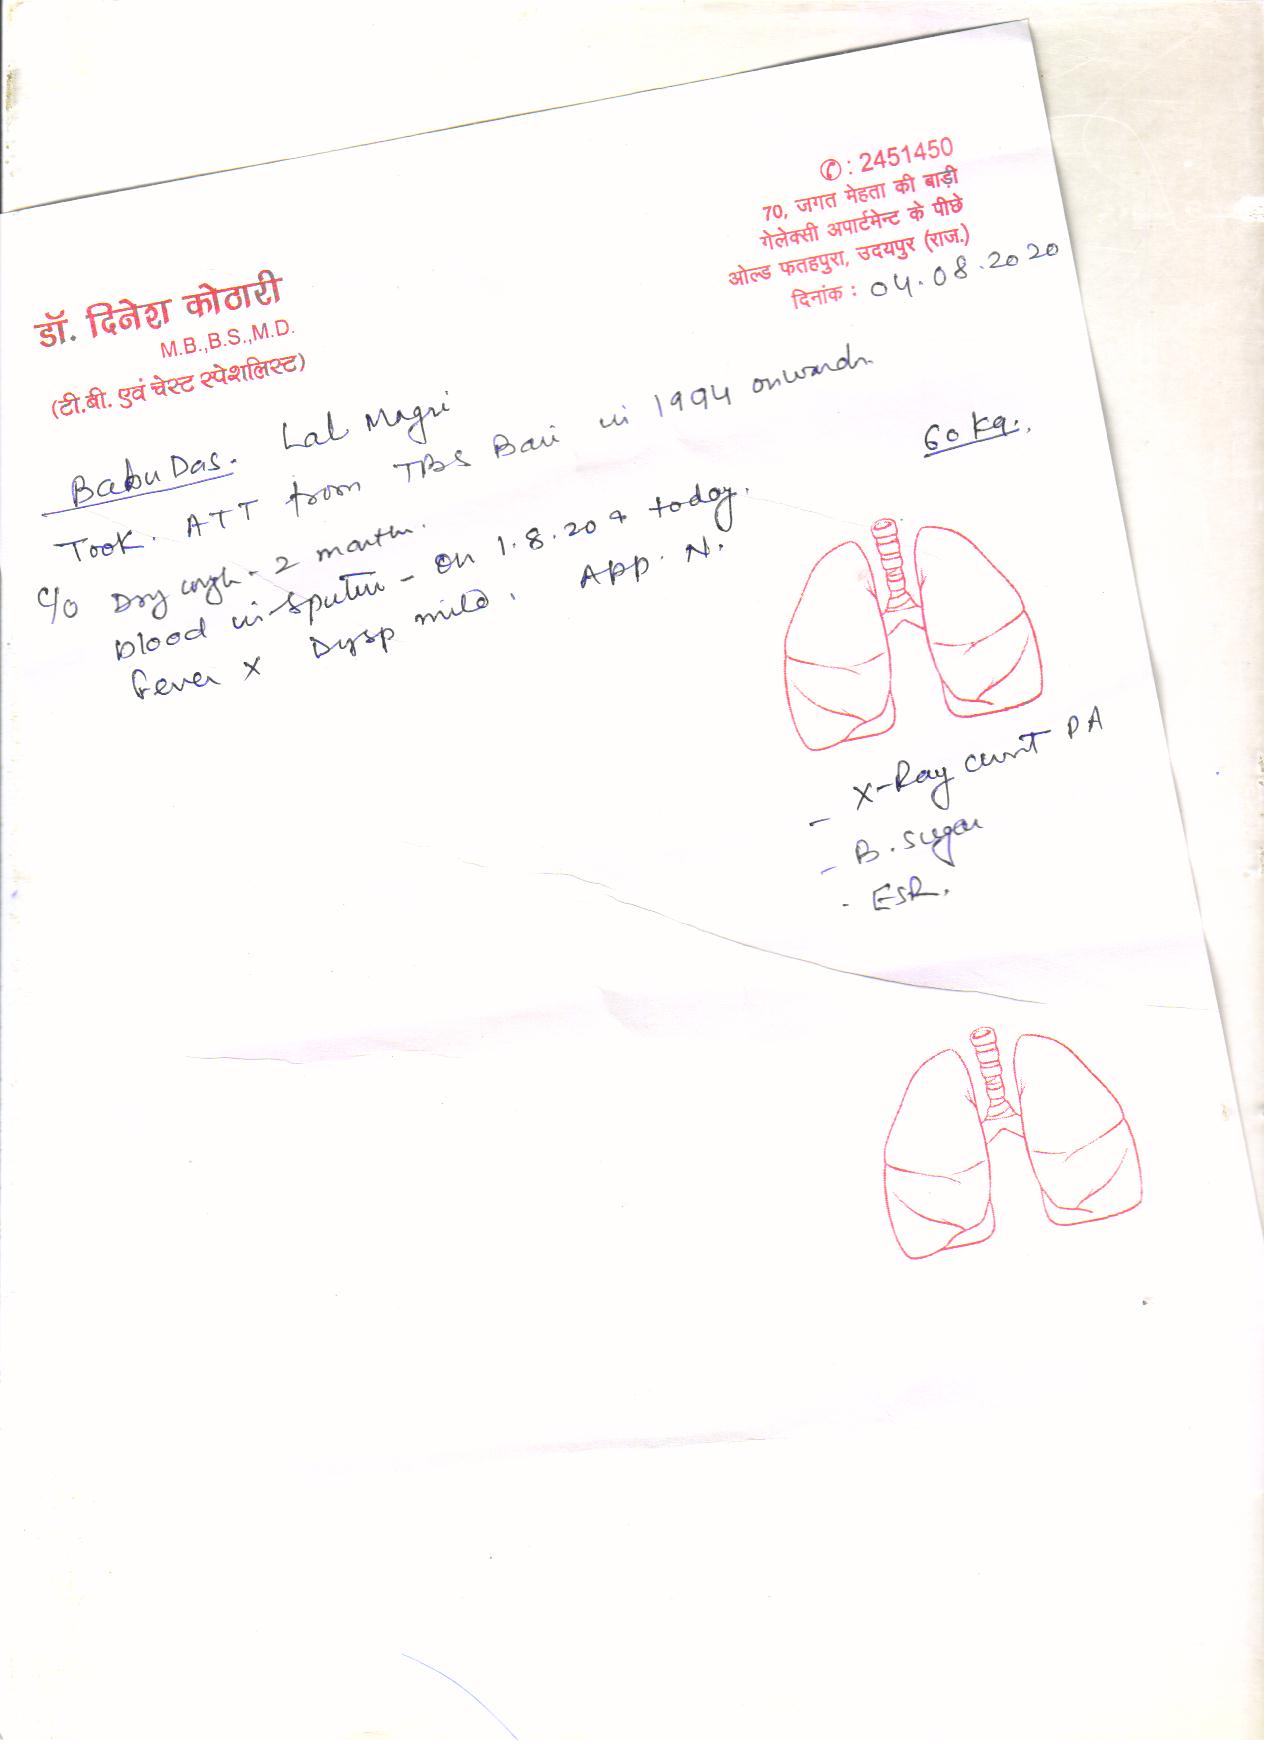 ✆ : 2451450
70, जगत मेहता की बाड़ी
गेलेक्सी अपार्टमेन्ट के पीछे
ओल्ड फतहपुरा, उदयपुर (राज.)
दिनांक : 04.08.2020
डॉ. दिनेश कोठारी
M.B.,B.S.,M.D.
(टी.बी. एवं चेस्ट स्पेशलिस्ट)
Babu Das. Lal Magri
60 Kg.
Took. ATT from TBS Bari in 1994 onwards.
C/o Dry cough - 2 months.
blood in sputum - on 1.8.20 & today.
Fever x Dysp mild. App. N.
- X-Ray chest PA
- B. Sugar
- ESR.